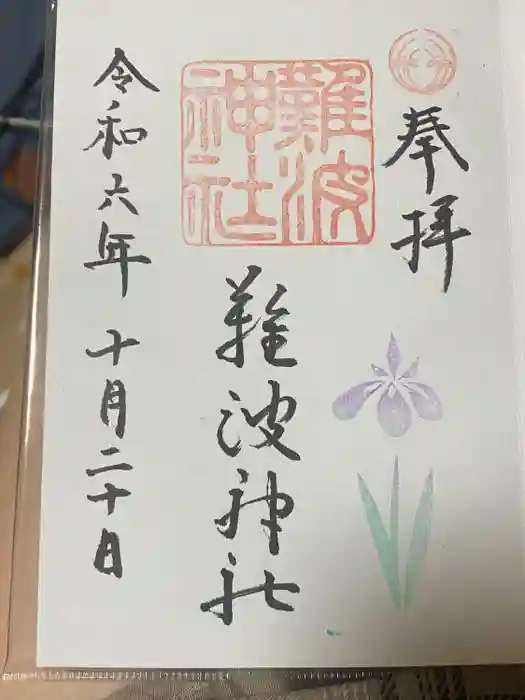 奉拝
難波
神社
難波神社
令和六年 十月二十日